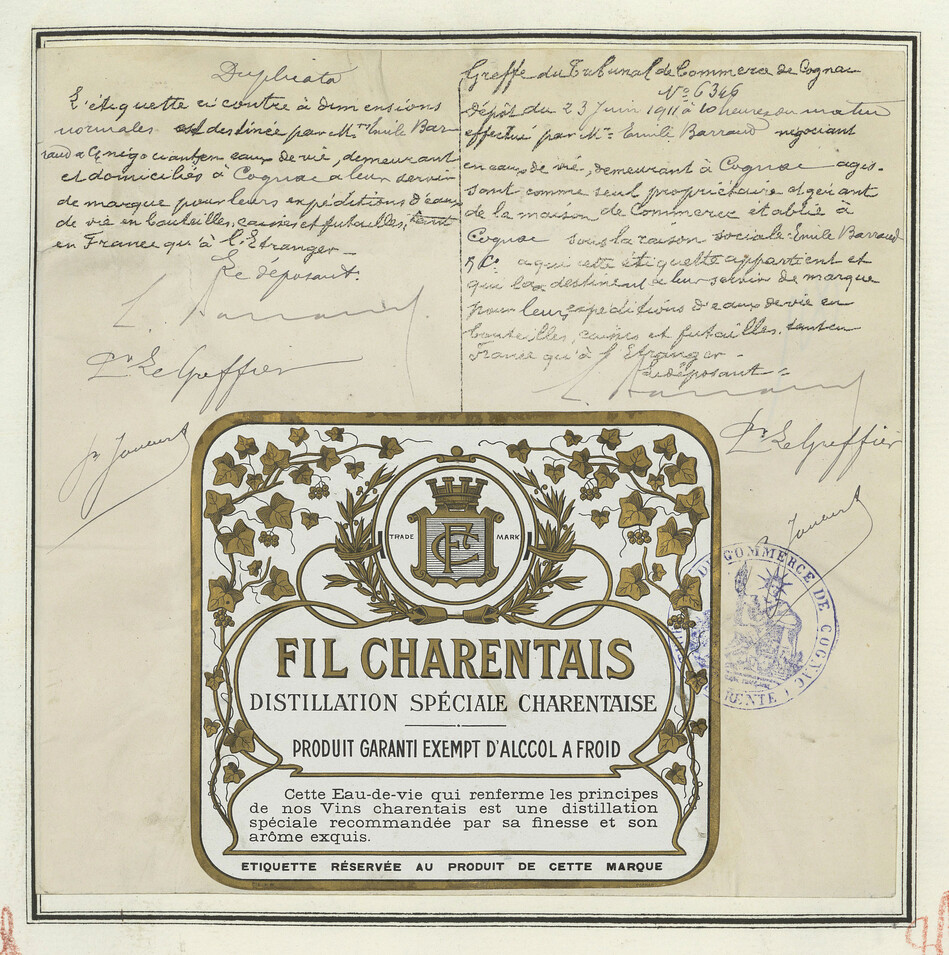 Duplicata
L'étiquette ci contre à dimensions
normales est destinée par Mr Emile Bar-
raud & Cie négociants en eaux de vie, demeurant
et domiciliés à Cognac a leur servir
de marque pour leurs expéditions d'eaux
de vie en bouteilles, caisses et futailles, tant
en France qu'à l'Etranger -
Le déposant.
E. Barraud
Pr Le Greffier
Greffe du Tribunal de Commerce de Cognac
No 6346
Dépôt du 23 Juin 1911 à 10 heures du matin
effectué par Mr Emile Barraud négociant
en eaux de vie, demeurant à Cognac agis-
sant comme seul propriétaire et gérant
de la maison de Commerce établie à
Cognac sous la raison sociale Emile Barraud
& Cie a qui cette étiquette appartient et
qui la destinent a leur servir de marque
pour leurs expéditions d'eaux de vie en
bouteilles, caisses et futailles, tant en
France qu'à l'Etranger -
Le déposant -
E. Barraud
Pr Le Greffier
TRADE MARK
FC
FIL CHARENTAIS
DISTILLATION SPÉCIALE CHARENTAISE
PRODUIT GARANTI EXEMPT D'ALCCOL A FROID
Cette Eau-de-vie qui renferme les principes
de nos Vins charentais est une distillation
spéciale recommandée par sa finesse et son
arôme exquis.
ETIQUETTE RÉSERVÉE AU PRODUIT DE CETTE MARQUE
DE COMMERCE DE COGNAC
RENTE